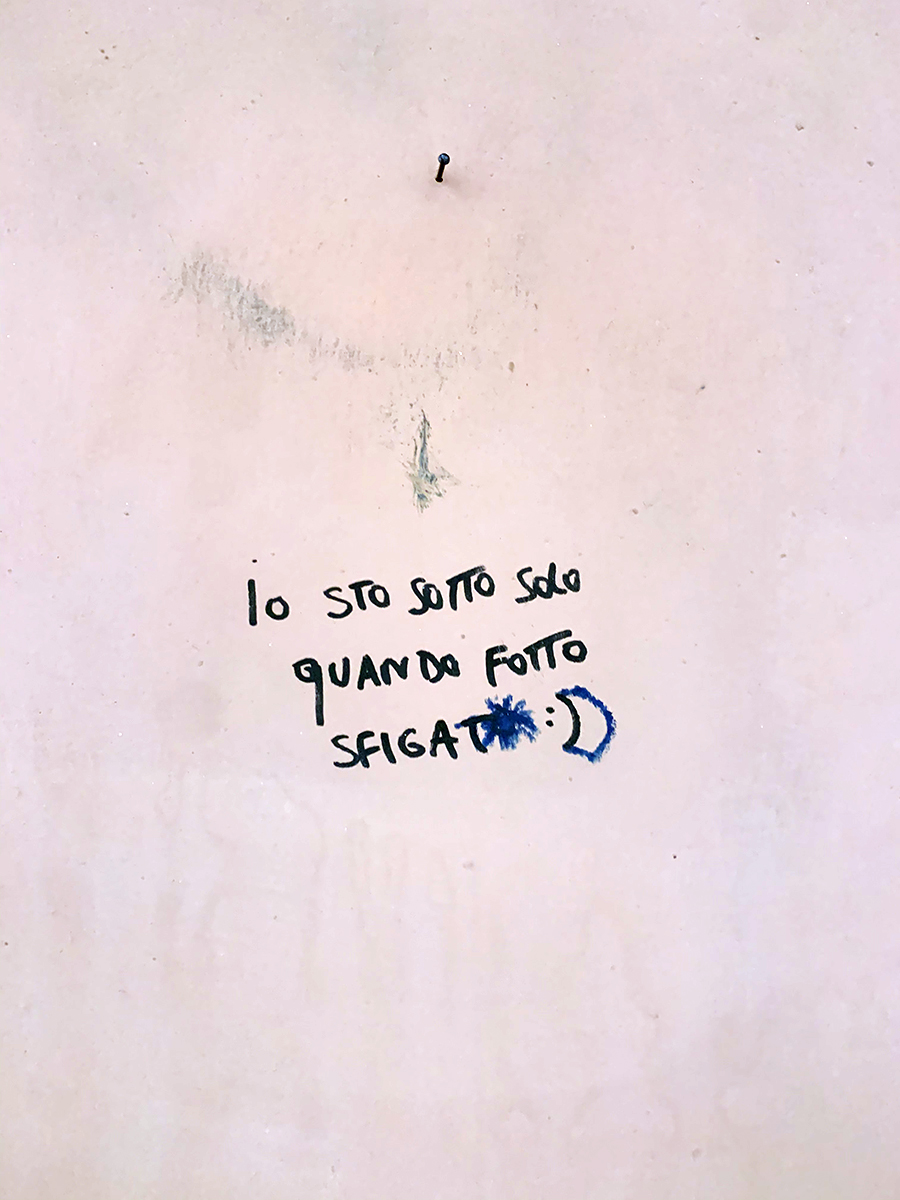 Io STO SOTTO SOLO
QUANDO FOTTO
SFIGAT* :)